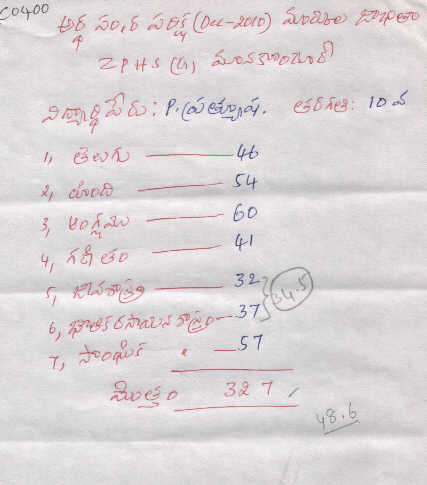 C0400
అర్ధ సం,ర పరీక్ష (Dec-2010) మార్కుల జాబితా
ZPHS (G),
విద్యార్థి పేరు: P. ప్రత్యూష. తరగతి: 10 వ
1, తెలుగు — 46
2, హింది — 54
3, ఆంగ్లము — 60
4, గణితం — 41
5, జీవశాస్త్రం — 32
34.5
6, భౌతిక రసాయన శాస్త్రం — 37
7, సాంఘిక " — 57
మొత్తం 327
48.6